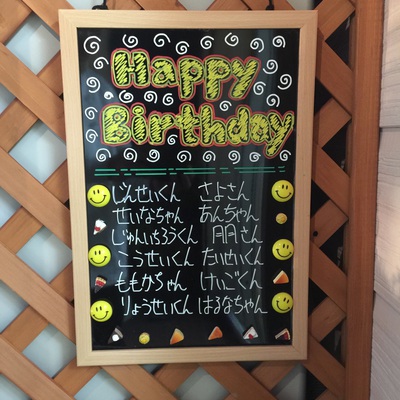 Happy
Birthday
じんせいくん さよさん
せいなちゃん あんちゃん
じゅんいちろうくん 朋さん
こうせいくん たいせいくん
ももかちゃん けいごくん
りょうせいくん はるなちゃん